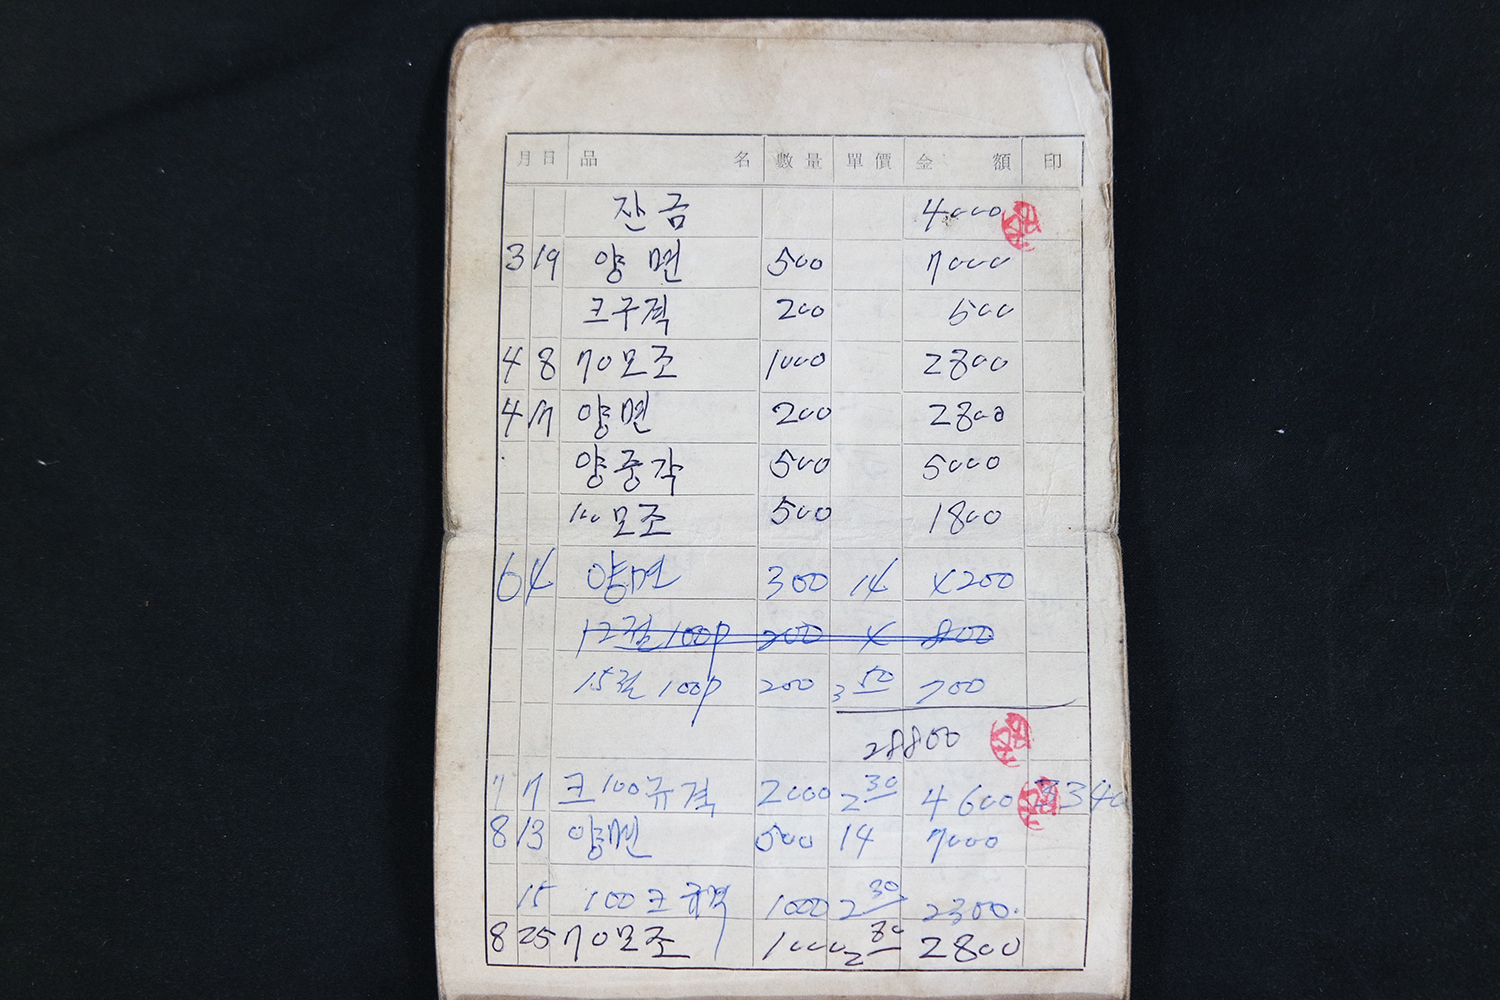 月 日 品 名 數量 單價 金 額 印
잔금 4000
3 19 양면 500 7000
크구격 200 600
4 8 70모조 1000 2800
4 17 양면 200 2800
양중각 500 5000
100모조 500 1800
6 4 양면 300 14 4200
12절 100p 200 4 800
15절 100p 200 3 50 700
28800
7 7 크100규격 2000 2 30 4600
8 13 양면 500 14 7000
15 100크규격 1000 2 30 2300
8 25 70모조 1000 2 80 2800